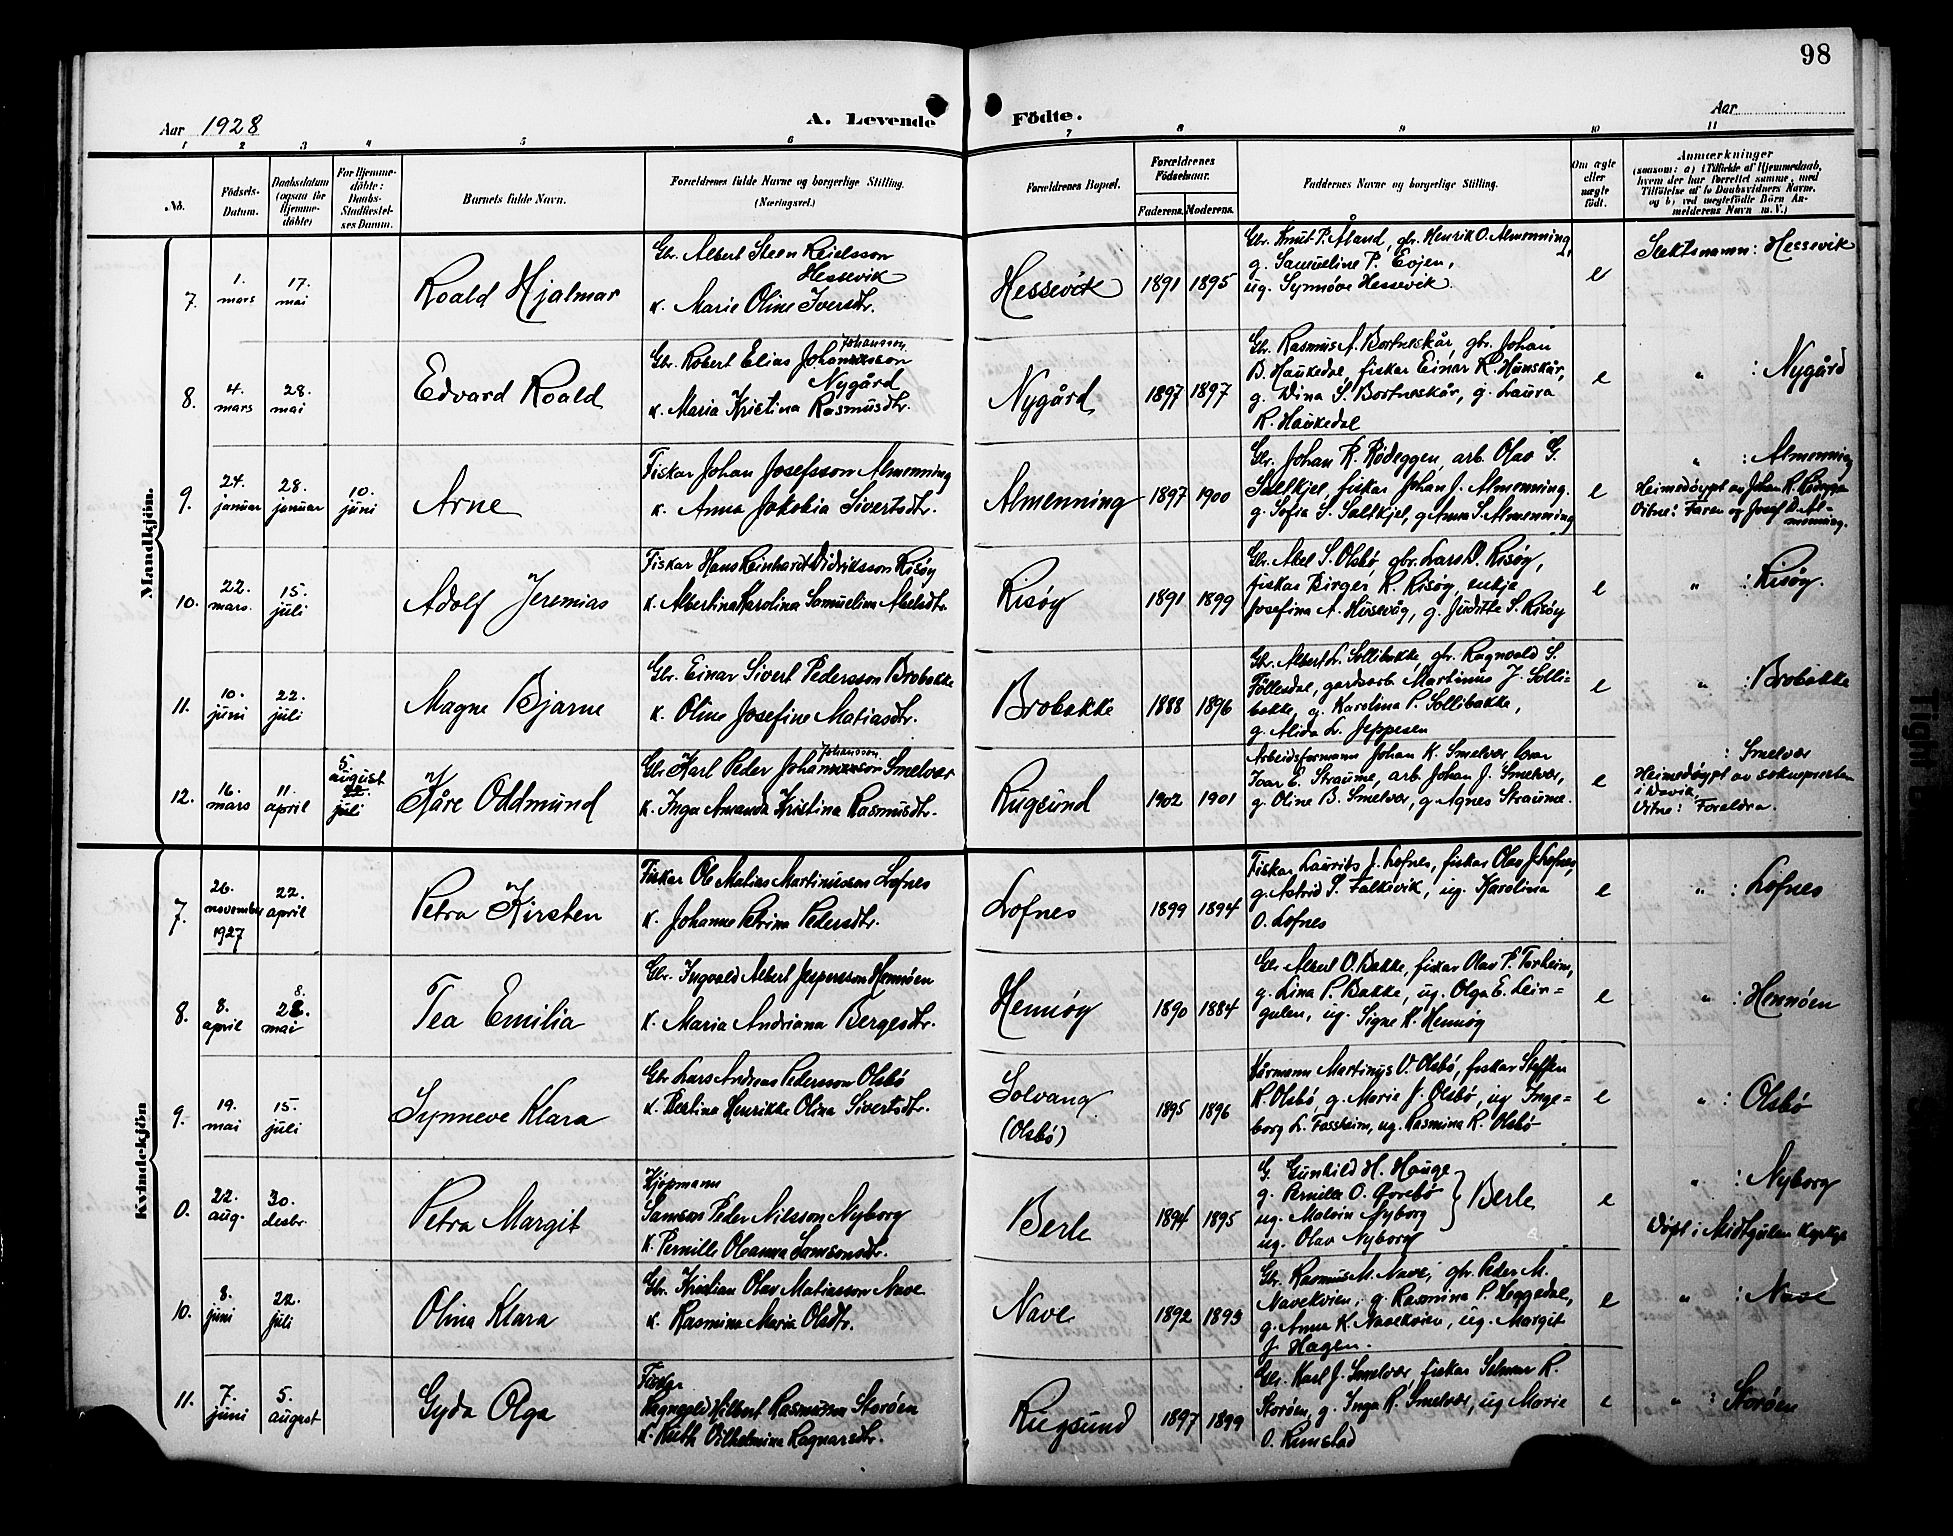 98
Aar 1928
A. Levende
Födte.
Aar
1 2 3 4 5 6 7 8 9 10 11
No.
Födsels-Datum.
Daabsdatum (ogsaa for Hjemme-döbte)
For Hjemme-döbte: Daabs-Stadfæstel-ses Datum.
Barnets fulde Navn.
Forældrenes fulde Navne og borgerlige Stilling.
(Næringsvei.)
Forældrenes Bopæl.
Forældrenes Födselsaar.
Faderens. Moderens.
Faddernes Navne og borgerlige Stilling.
Om ægte eller uægte födt.
Anmærkninger
(saasom: a) i Tilfælde af Hjemmedaab,
hvem der har forrettet samme, med
Tilföielse af to Daabsvidners Navne,
og b) ved uegtefödte Börn An-
melderens Navn m. V.)
Mandkjön.
7.
1. mars
17. mai
Roald Hjalmar
Gbr. Albert Steen Reielsson
Hessevik
k. Marie Oline Iversdtr.
Hessevik
1891 1895
Gbr. Knut P. Åland, gbr. Henrik O. Almenning,
g. Samueline P. Eojen,
ug. Synnøve Hessevik
e
Slektsnamn: Hessevik
8.
4. mars
28. mai
Edvard Roald
Johansson
Gbr. Robert Elias Johannesson
Nygård
k. Maria Kristina Rasmusdtr.
Nygård
1897 1897
Gbr. Rasmus A. Bortneskår, gbr. Johan
B. Haukedal, fiskar Einar R. Hunskår,
g. Dina S. Bortneskår, g. Laura
R. Haukedal
e
" : Nygård
9.
24. januar
28. januar
10. juni
Arne
Fiskar Johan Josefsson Almenning
k. Anna Jakobia Sivertsdtr.
Almenning
1897 1900
Gbr. Johan R. Rødeggen, arb. Olav G.
Saltkjel, fiskar Johan J. Almenning.
g. Sofia S. Saltkjel, g Anna S. Almenning
e
" : Almenning
Heimedøypt av Johan R.
Vitne: Faren og Josef D. Al-
menning.
10.
22. mars.
15. juli
Adolf Jeremias
Fiskar Hans Reinhardt Didriksson Risøy
k. Albertina Karolina Samueline Abelsdtr.
Risøy
1891 1899
Gbr. Abel S. Olsbø gbr. Lars D. Risøy,
fiskar Birger R. Risøy, enkje
Josefina A. Husevåg, g. Juditte S. Risøy
e
" : Risøy.
11.
10. juni
22. juli
Magne Bjarne
Gbr. Einar Sivert Pedersson Brobakke
k. Oline Josefine Matiasdtr.
Brobakke
1888 1896
Gbr. Albert L. Sollibakke, gbr. Ragnvald S.
Föllesdal, gardsarb. Martinus J. Solli-
bakke, g. Karolina P. Sollibakke,
g. Alida L. Jeppesen
e
" : Brobakke
12.
16. mars
11. april
5. august
22. juli
Kåre Oddmund
Johansson
Gbr Karl Peder Johannesson Smelvær
k. Inga Amanda Kristina Rasmusdtr.
Rugsund
1902 1901
Arbeidsformann Johan K. Smelvær,
Ivar E. Straume, arb. Johan J. Smelvær,
g. Oline B. Smelvær, g Agnes Straume.
e
: Smelvær
Heimedøypt av soknepresten
i Davik
Vitne: Foreldra.
Kvindekjön
7.
26. november 1927
22. april
Petra Kirsten
Fiskar Ole Matias Martinusson Lofnes
k. Johanne Petrina Pedersdtr.
Lofnes
1899 1894
Fiskar Laurits J. Lofnes, fiskar Olav J. Lofnes,
g. Astrid S. Falkevik, ug. Karolina
O. Lofnes
e
" : Lofnes
8.
8. april
8.
28. mai
Tea Emilia
Gbr. Ingvald Albert Jespersson Hennøen
k. Maria Andriana Bergesdtr.
Hennøy
1890 1884
Gbr Albert O. Bakke, fiskar Olav P. Torheim,
g. Lina P. Bakke, ug. Olga E. Leir-
gulen, ug. Signe K. Hennøy
e
" : Hennöen
9.
19. mai
15. juli
Synneve Klara
Gbr Lars Andreas Pedersson Olsbø
k. Berlina Henrikke Olina Sivertsdtr.
Solvang
(Olsbø)
1895 1896
Kårmann Martinus O. Olsbø, fiskar Steffen
R. Olsbø g. Marie J. Olsbø, ug Inge-
borg L. Fossheim, ug. Rasmina R. Olsbø
e
" : Olsbø
0.
22. aug.
30. desbr.
Petra Margit
Kjøpmann
Samson Peder Nilsson Nyborg
k. Pernille Oleanna Samsonsdtr.
Berle
1894 1895
G. Gunhild H. Hauge
g. Pernille O. Gorebø
ug. Malvin Nyborg
ug. Olav Nyborg
Berle
e
" : Nyborg
Døpt i Midtgulen kyrkje
10.
8. juni
22. juli
Olina Klara
Gbr. Kristian Olav Matiasson Nave
k. Rasmina Maria Olsdtr.
Nave
1892 1893
Gbr. Rasmus M. Nave, gbr. Peder M.
Navekvien, g. Rasmina P. Heggedal,
g. Anna K. Navekvien, ug. Margit
J. Hagen.
e
" : Nave
11.
7. juni
5. august
Gyda Olga
Fiskar
Ragnvald Hilbert Rasmusson Storøen
k. Ruth Vilhelmina Ragnarsdtr.
Rugsund
1897 1899
Gbr. Karl J. Smelvær, fiskar Selmer R.
Storøen, g. Inga K. Smelvær, ug Marie
O. Rimstad
e
" : Storøen
Tight